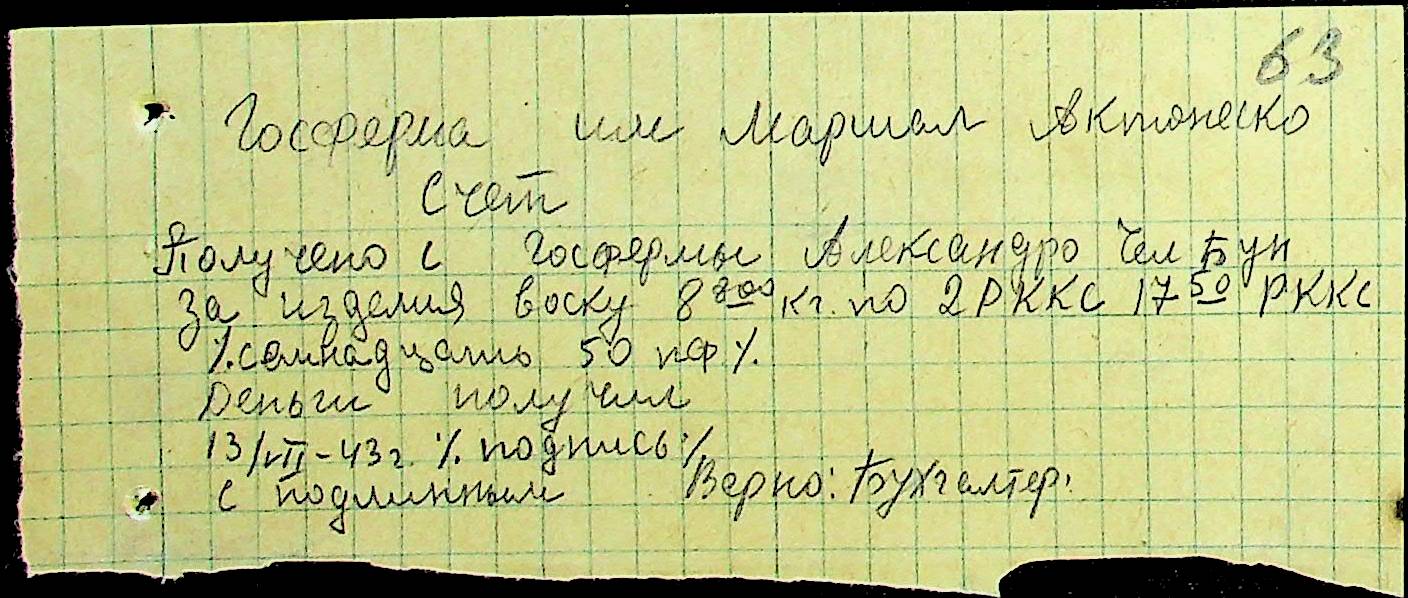 63
Госферма им Маршал Актонеско
Счет
Получено с госфермы Александро Чел Бун
за изделия воску 8 700 кг. по 2 РККС 17 50 РККС
%. семнадцать 50 пф %.
Деньги получил
13/VII-43 г. %. подпись %.
с подлинным Верно: Бухгалтер.